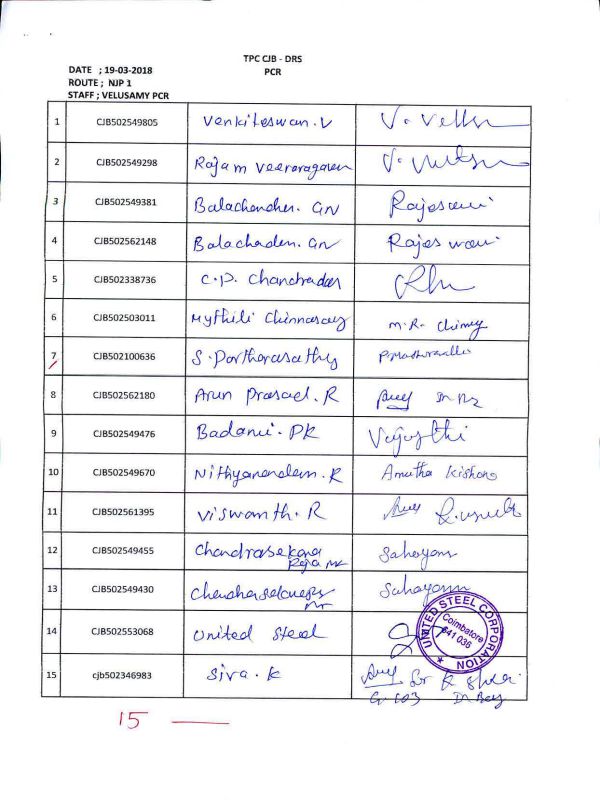 TPC CJB - DRS
PCR
DATE ; 19-03-2018
ROUTE ; NJP 1
STAFF ; VELUSAMY PCR
1 CJB502549805 Venkiteswan.V
2 CJB502549298 Rajam Veeraragaven
3 CJB502549381 Balachander. GN Rajeswari
4 CJB502562148 Balachaden. GN Rajeswari
5 CJB502338736 C.P. Chandradas
6 CJB502503011 Mythili Chinnasamy M.R.
7 CJB502100636 S. Partharasathy
8 CJB502562180 Arun Prasad. R
9 CJB502549476 Badami. PK
10 CJB502549670 Nithyanandam. R Amutha Kishore
11 CJB502561395 Viswanth. R
12 CJB502549455 Chandrasekara Raja Sahayam
13 CJB502549430 Sahayam
14 CJB502553068 United Steel
UNITED STEEL CORPORATION
Coimbatore
641 036
15 cjb502346983 Siva. K
G 603
15